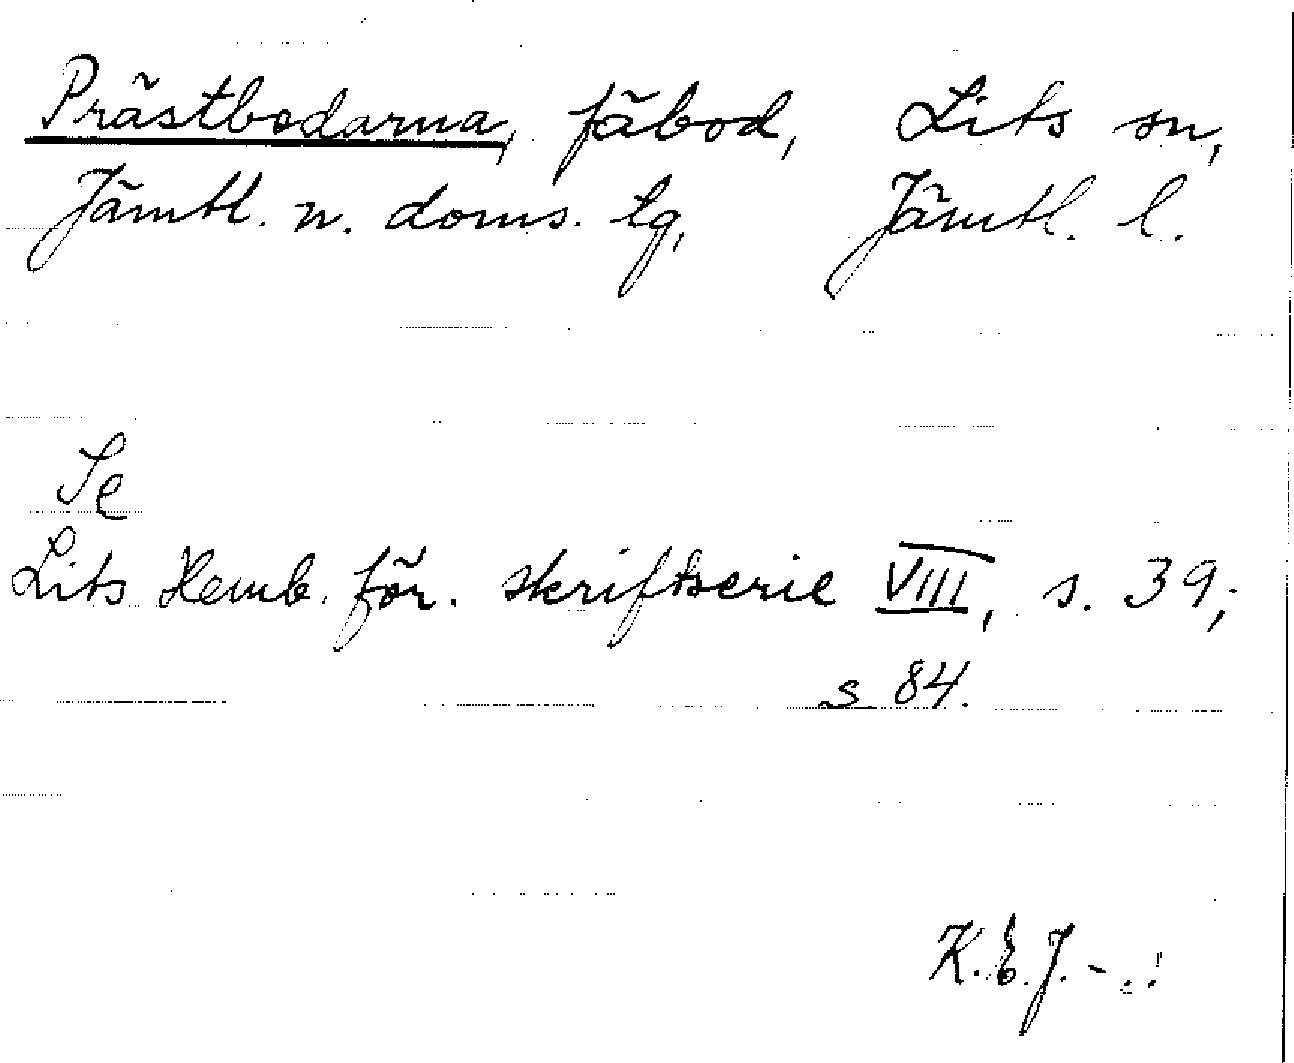 Prästbodarna, fäbod, Lits sn,
Jämtl. n. doms. lg, Jämtl. l.
Se
Lits Hemb. för. skriftserie VIII, s. 39;
s 84.
K.E.J.